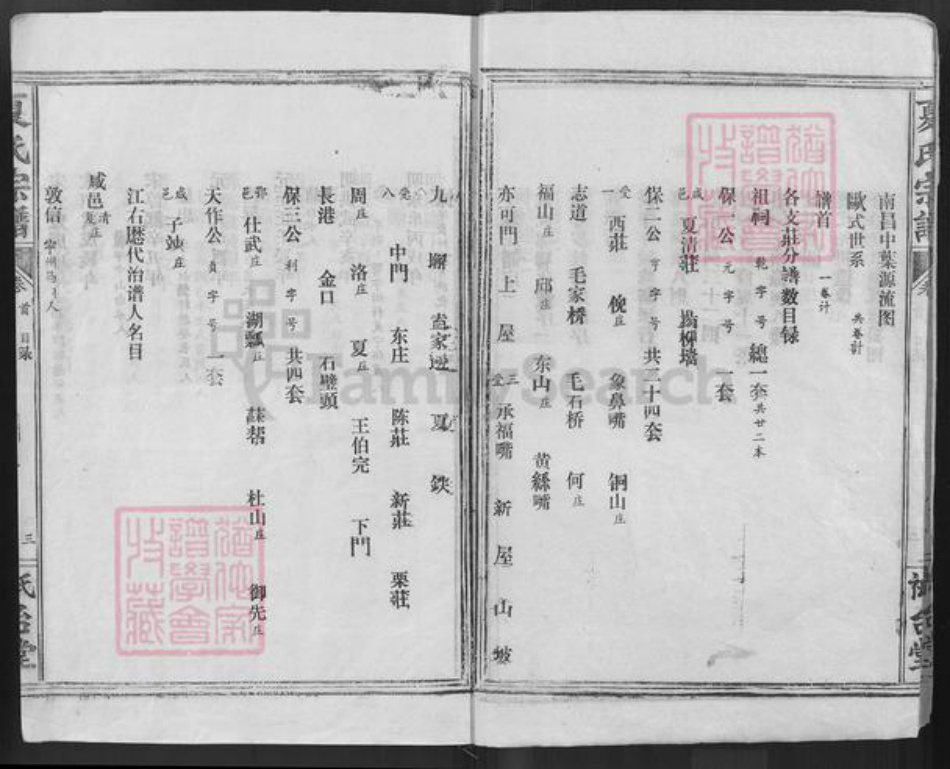 南昌中葉源流图
歐式世系 共卷計
譜首 一卷計
各支莊分譜数目録
祖祠 乾字号 總一套 共廿二本
保一公 元字号 一套
咸邑 夏清莊 楊柳墻
保二公 亨字号 共二十四套
受一 西莊 俛庄 象鼻嘴 铜山庄
志道 毛家桥 毛石桥 何庄
福山庄 邱庄 东山庄 黄絲嘴
亦可門 上屋 受三 承福嘴 新屋山坡
九 夏 鉄
受八 中門 东庄 陈莊 新莊 栗莊
周庄 洛庄 夏庄 王伯完 下門
長港 金口 石壁頭
保三公 利字号 共四套
鄂邑 仕武庄 湖瓢庄 蘇帮 杜山庄 御先庄
天作公 貞字号 一套
咸邑 子𡊨庄
江右歷代治谱人名目
咸邑 清庄
敦信
夏氏宗譜 卷首 目録 三
夏氏宗譜
FamilySearch